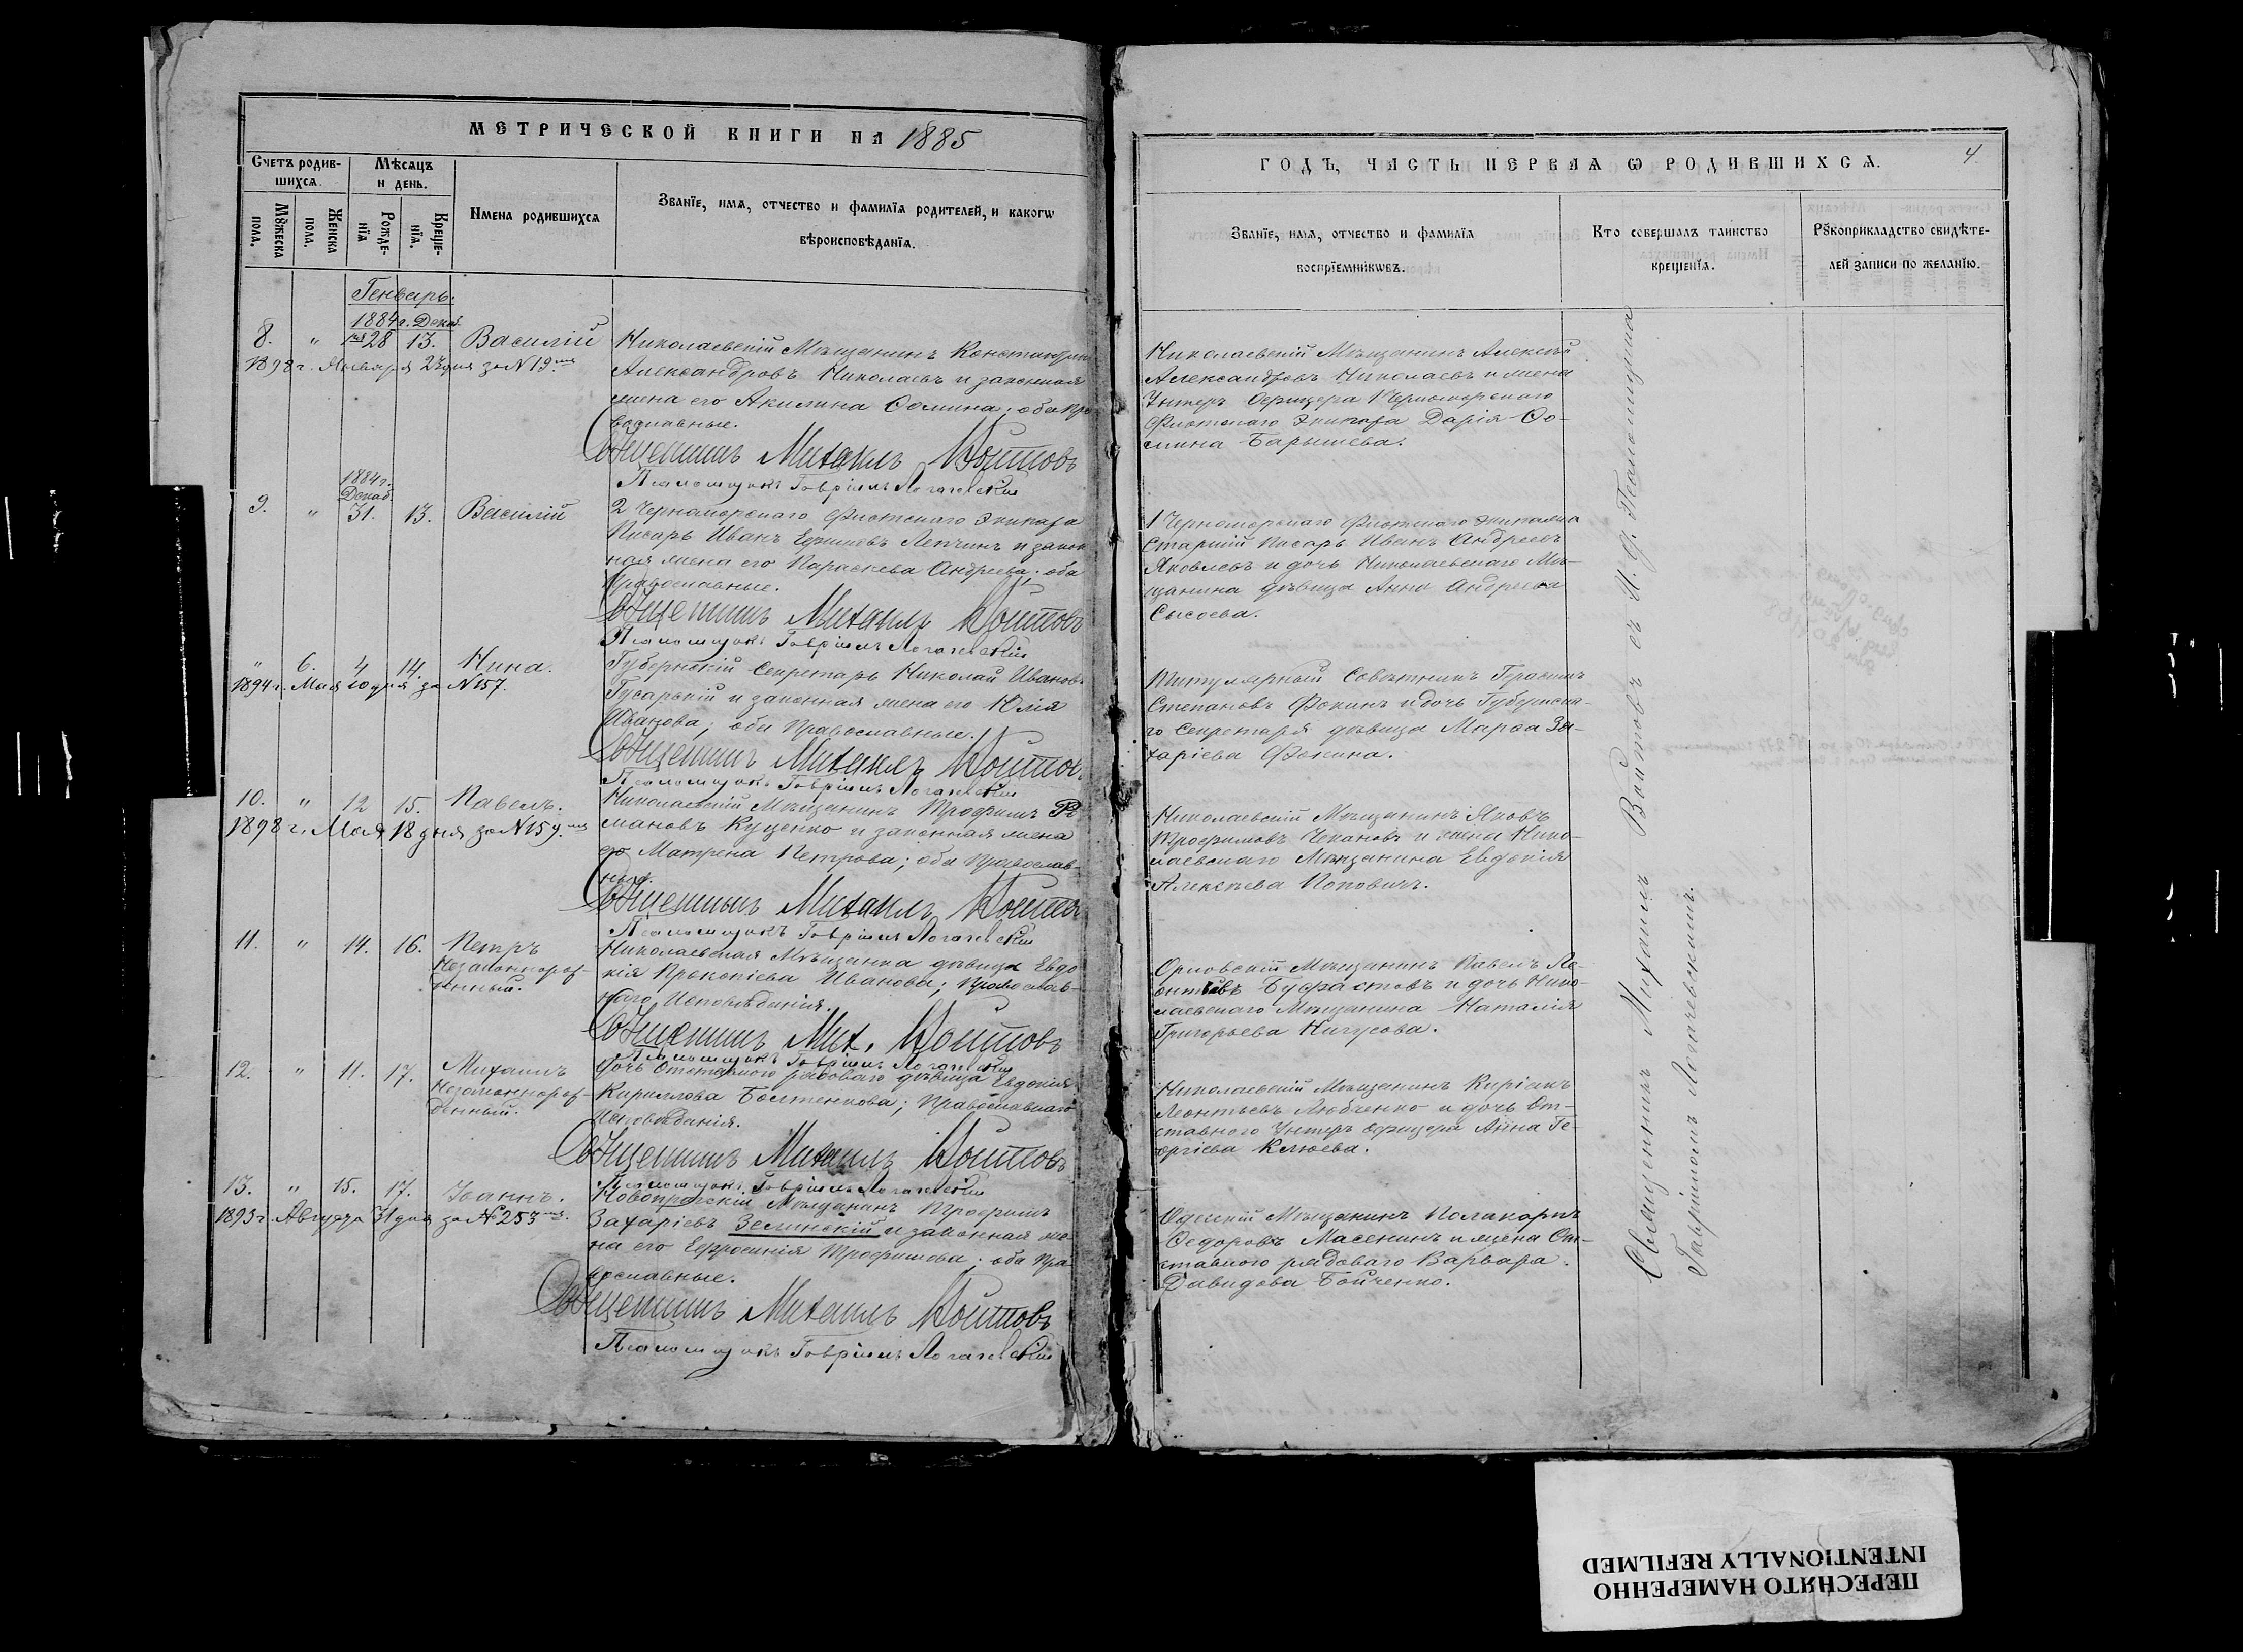 МЕТРИЧЕСКОЙ КНИГИ НА 1885
Счетъ родив-
шихсѧ.
Мѣсѧцъ
и день.
Мꙋжеска
пола.
Женска
пола.
Рожде-
нїѧ
Креще-
нїѧ.
Имена родившихсѧ
Званїе, имѧ, отчество и фамилїѧ родителей, и какогѡ
вѣроисповѣданїѧ.
Генварь.
1884 г. Декаб.
8. " 28 13. Василій
1898 г. Января 27 дня за N 19
Николаевскій Мѣщанинъ Константин
Александровъ Николаевъ и законная
жена его Акилина Ѳомина; оба пра
вославные.
Священникъ Михаилъ Войтовъ
Псаломщикъ Гавріилъ Логачевскій
1884 г.
Декаб.
9. " 31. 13. Василій
2 Черноморскаго Флотскаго Экипажа
Писарь Иванъ Ефимовъ Лепчинъ и закон
ная жена его Параскева Андреева; оба
Православные.
Священникъ Михаилъ Войтовъ
Псаломщикъ Гавріилъ Логачевскій
" 6. 4 14. Нина.
1894 г. Мая 10 дня за N 157.
Губернскій Секретарь Николай Иванов.
Гусарскій и законная жена его Юлія
Иванова; оба Православные.
Священникъ Михаилъ Войтов.
Псаломщикъ Гавріилъ Логачевскій
10. " 12 15. Павелъ.
1898 г. Мая 18 дня за N 159.
Николаевскій Мѣщанинъ Трофимъ Ро
мановъ Куценко и законная жена
его Матрена Петрова; оба Православ-
ные.
Священникъ Михаилъ Войтов
Псаломщикъ Гавріилъ Логачевскій
11. " 14. 16. Петръ
Незаконнорож-
денный.
Николаевская Мѣщанка дѣвица Евдо
кія Прокопіева Иванова; Православ-
наго Исповѣданія.
Священникъ Мих. Войтовъ
Псаломщикъ Гавріилъ Логачевскій
12. " 11. 17. Михаилъ
Незаконнорож-
денный.
дочь Отставного рядоваго дѣвица Евдокія
Кириллова Болтенкова; Православнаго
Исповѣданія.
Священникъ Михаилъ Войтовъ
Псаломщикъ Гавріилъ Логачевскій
13. " 15. 17. Іоаннъ.
1893 г. Августа 31 дня за № 253
Новопражскій Мѣщанинъ Трофимъ
Захаріевъ Зелинскій и законная же
на его Ефросинія Трофимова; оба Пра
вославные.
Священникъ Михаилъ Войтовъ
Псаломщикъ Гавріилъ Логачевскій
ГОДЪ, ЧАСТЬ ПЕРВАѦ Ѡ РОДИВШИХСѦ.
4.
Званїе, имѧ, отчество и фамилїѧ
воспрїемникѡвъ.
Кто совершалъ таинство
крещенїѧ.
Рꙋкоприкладство свидѣте-
лей записи по желанїю.
Николаевскій Мѣщанинъ Алексѣй
Александровъ Николаевъ и жена
Унтеръ Офицера 1 Черноморскаго
Флотскаго Экипажа Дарія Ѳо-
мина Барышева.
1 Черноморскаго Флотскаго Экипажа
Старшій Писарь Иванъ Андреевъ
Яковлевъ и дочь Николаевскаго Мѣ-
щанина дѣвица Анна Андреева
Сысоева.
Титулярный Совѣтникъ Герасимъ
Степановъ Фокинъ и дочь Губернска-
го Секретаря дѣвица Марѳа За-
харіева Фокина.
Николаевскій Мѣщанинъ Яковъ
Трофимовъ Чекановъ и жена Нико-
лаевскаго Мѣщанина Евдокія
Алексѣева Поповичъ.
Орловскій Мѣщанинъ Павелъ Ле-
онтіевъ и дочь Нико-
лаевскаго Мѣщанина Наталія
Григорьева Нигусова.
Николаевскій Мѣщанинъ Киріакъ
Леонтьевъ Любченко и дочь От-
ставного Унтеръ Офицера Анна Ге-
оргіева Клюева.
Одесскій Мѣщанинъ Поликарпъ
Ѳедоровъ Масенинъ и жена От-
ставного рядоваго Варвара
Давидова Бойченко.
Священникъ Михаилъ Войтовъ съ И. д. Псаломщика
Гавріиломъ Логачевскимъ.
ПЕРЕСНЯТО НАМЕРЕННО
INTENTIONALLY REFILMED